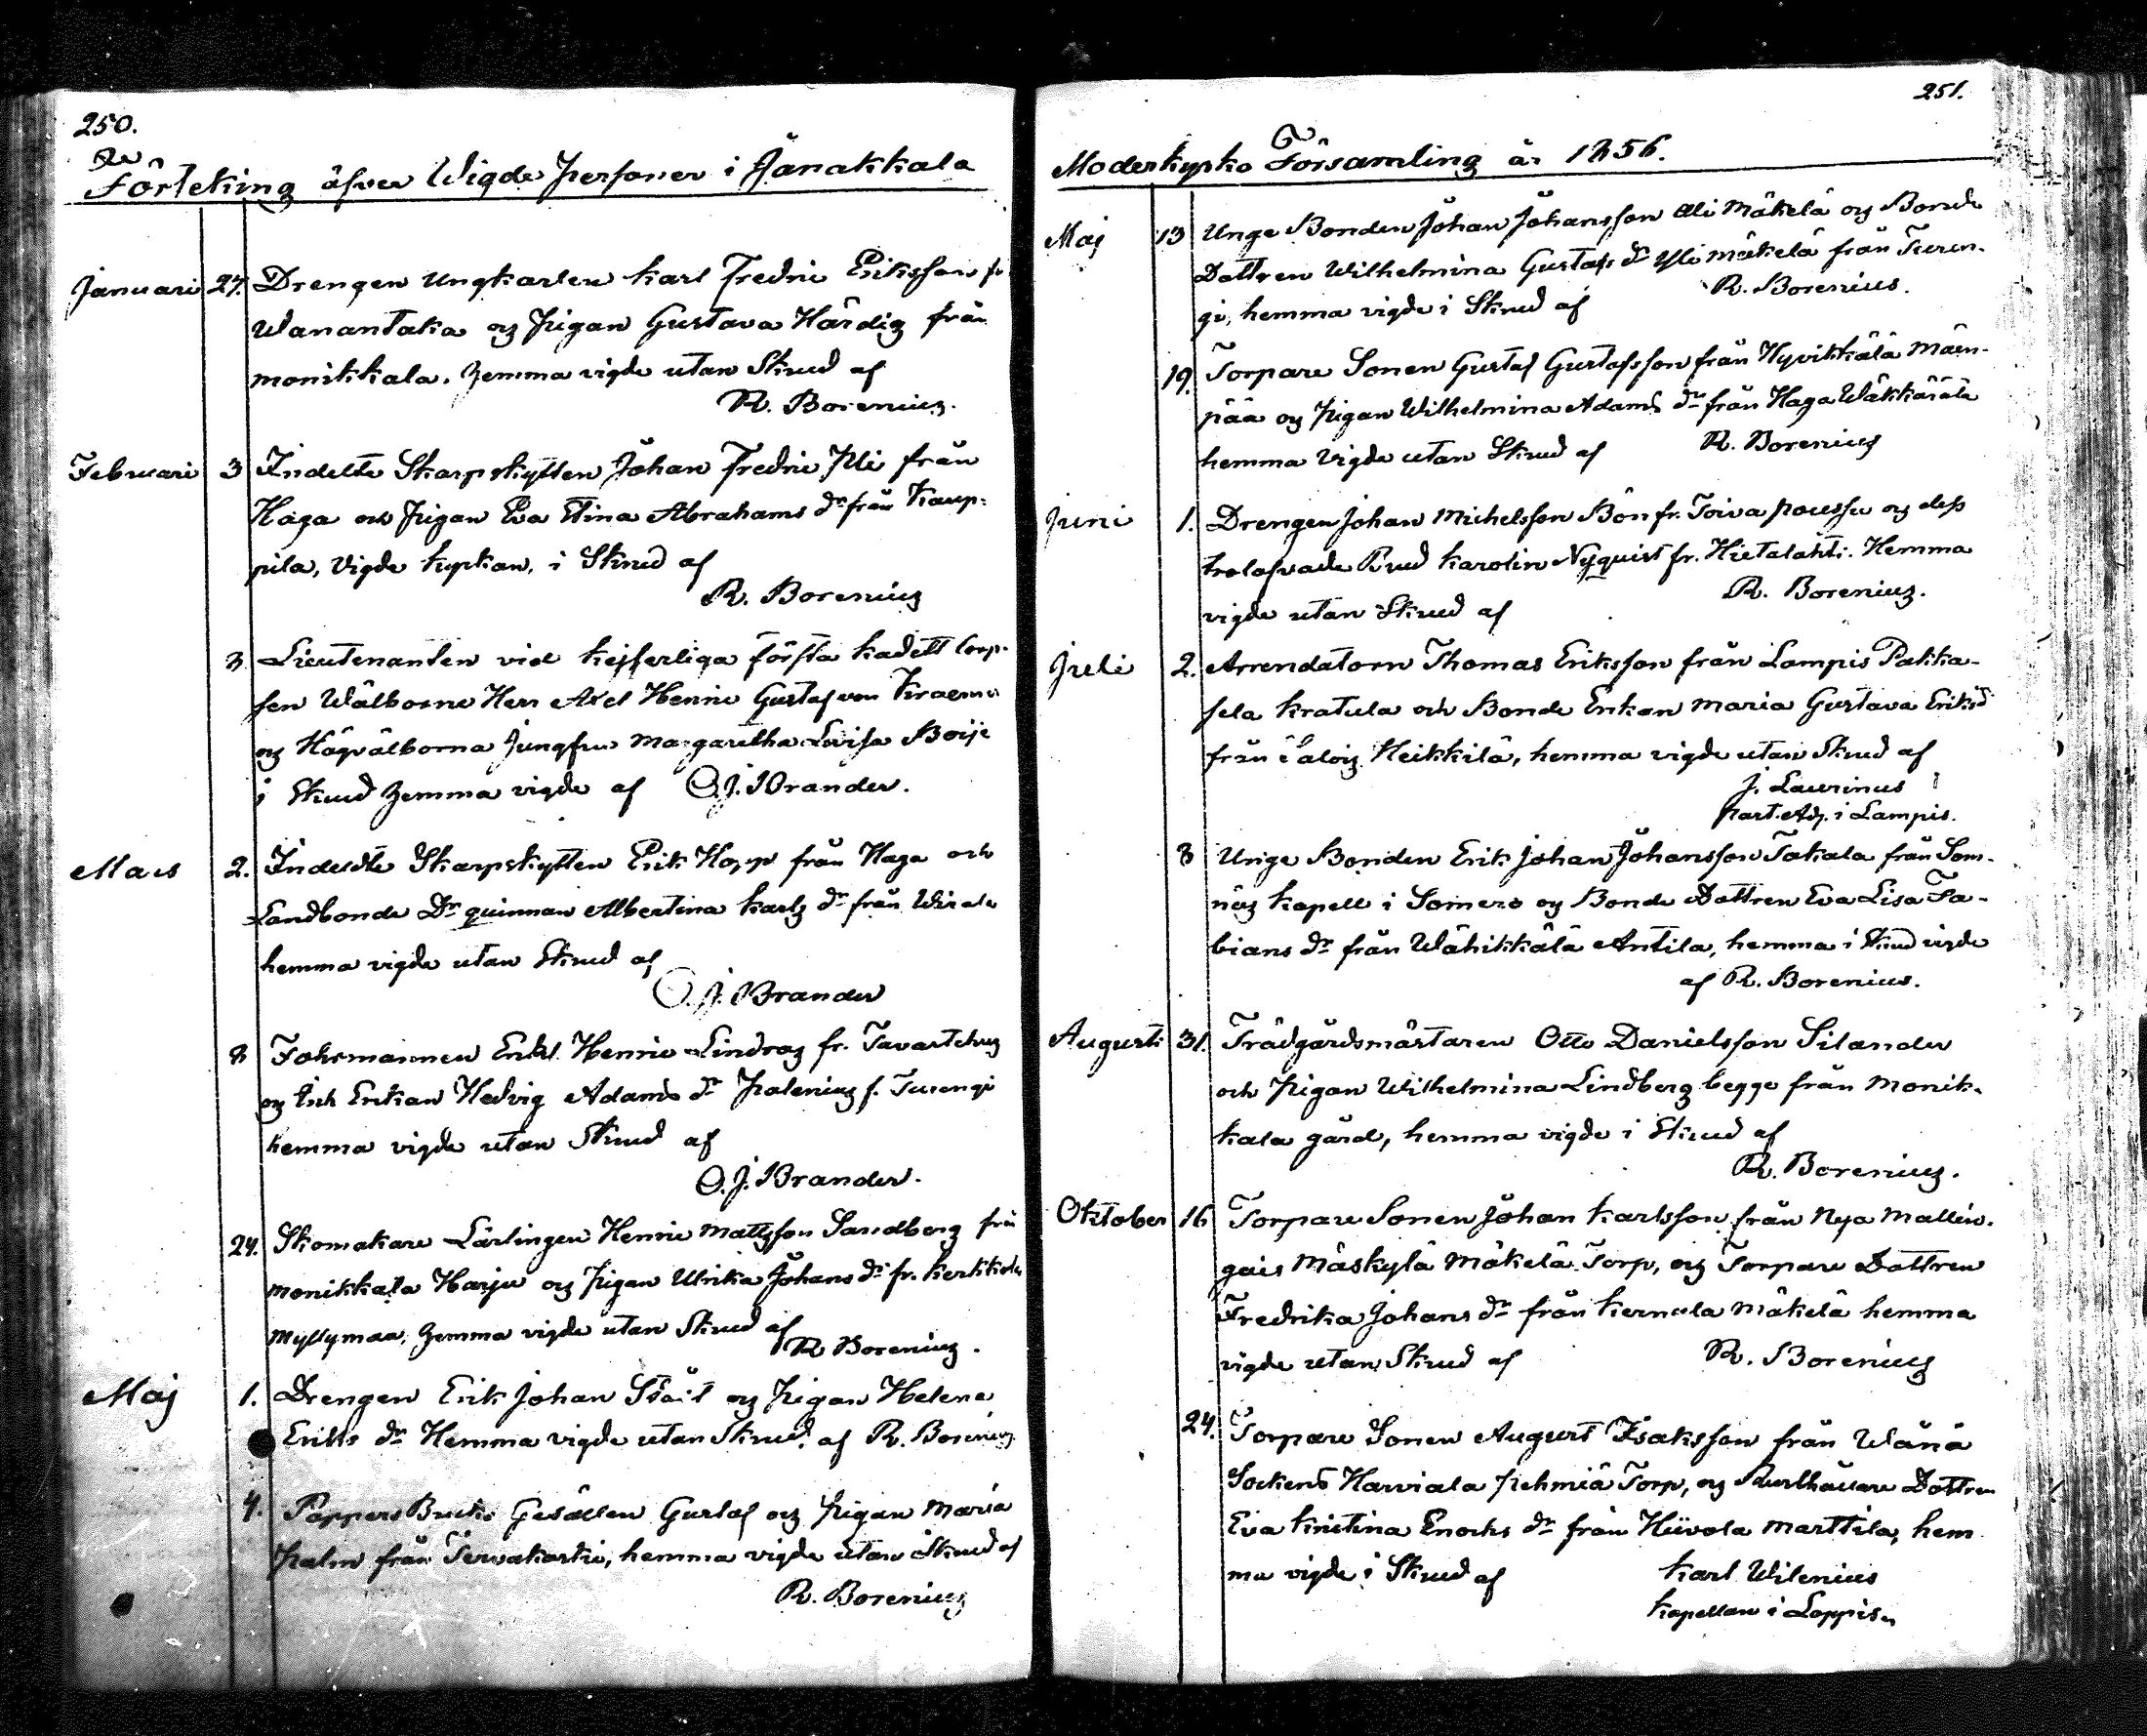 250.
Förteking äfver Wigde Personer i Janakkala
Januari 27. Drengen Ungkarlen Karl Fredric Eriksson fr
Wanantaka og Pigan Gustava Härdig från
Monikkala. hemma vigde utan Skrud af
R. Borenius.
Februari 3 Indelte Skarpskytten Johan Fredric Pli från
Haga och Pigan Eva Stina Abrahams dr från Kaup-
pila, vigde kyrkan, i Skrud af
R. Borenius
3. Lieutenanten vid kejserliga första Kadett Corp-
sen Wälborne Herr Axel Henric Gustaf von Kraemer
og Högvälborna Jungfru Margaretha Lovisa Boije
i Skrud hemma vigde af O. J. Brander.
Mars 2. Indeldte Skarpskytten Erik Hopp från Haga och
Landbonde Dr quinnan Albertina Karls dr från Wirala
hemma vigde utan Skrud af
O. J. Brander
8 Forsmannen Enkl. Henric Lindroz fr. Tavastehus
og Enkan Hedvig Adams dr Palenius f. Turengi
hemma vigde utan Skrud af
O. J. Brander.
24. Skomakare Lärlingen Henric Mattsson Sandberg från
Monikkala Harju og Pigan Ulrika Johans dr fr. Kerkkola
Myllymaa, hemma vigde utan Skrud af
R. Borenius.
Maj 1. Drengen Erik Johan Stål og Pigan Helena
Eriks dr Hemma vigde utan Skrud af R. Borenius
4. Pappers Bruks Gesällen Gustaf og Pigan Maria
Palm från Tervakoski, hemma vigde utan Skrud af
R. Borenius
251.
Moderkyrko Församling år 1856.
Maj 13 Unge Bonden Johan Johansson Ali Mäkelä og Bonde
Dottren Wilhelmina Gustafs dr Yli mäkelä från Turen-
gi, hemma vigde i Skrud af R. Borenius.
19. Torpare Sonen Gustaf Gustafsson från Hyvikkälä Mäen-
pää og Pigan Wilhelmina Adams dr från Haga Wäkkärälä
hemma vigde utan Skrud af R. Borenius
Juni 1. Drengen Johan Michelsson Bön fr. Toiva och dess
trolofvade Brud Karolin Nyquist fr. Hietalahti. Hemma
vigde utan Skrud af R. Borenius.
Juli 2. Arrendatorn Thomas Eriksson från Lampis Pakka-
sela Kratula och Bonde Enkan Maria Gustava Eriks d
från Saloiz Heikkilä, hemma vigde utan Skrud af
J. Laurinus
Past. Adj. i Lampis.
8 Unge Bonden Erik Johan Johansson Takala från Som-
näs kapell i Somero og Bonde Dottren Eva Lisa Fa-
bians dr från Wähikkälä Antila, hemma i Skrud vigde
af R. Borenius.
Augusti 31. Trädgårdsmästaren Otto Danielsson Silander
och Pigan Wilhelmina Lindberg begge från Monik-
kala gård, hemma vigde i Skrud af
R. Borenius.
Oktober 16 Torpare Sonen Johan Karlsson från Nya Mallin-
gais Mäskylä Mäkelä Torp, og Torpare Dottren
Fredrika Johans dr från Kernala Mäkelä hemma
vigde utan Skrud af R. Borenius
24. Torpare Sonen August Isaksson från Wånå
Sockens Harviala Pehmiä Torp, og Dottren
Eva Kristina Enocks dr från Hiivola Marttila, hem
ma vigde i Skrud af Karl Wilenius
Kapellan i Loppis.